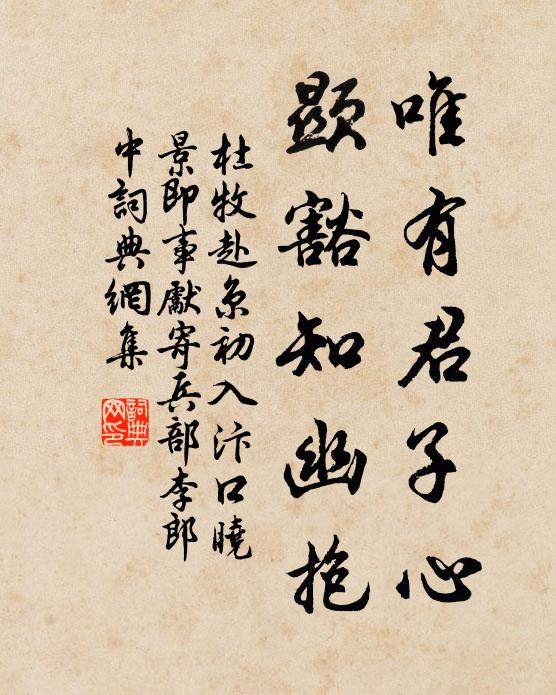 唯有君子心
顯豁知幽抱
杜牧赴京初入汴口曉
景即事獻寄兵部李郎
中詞典網集
詞典网印